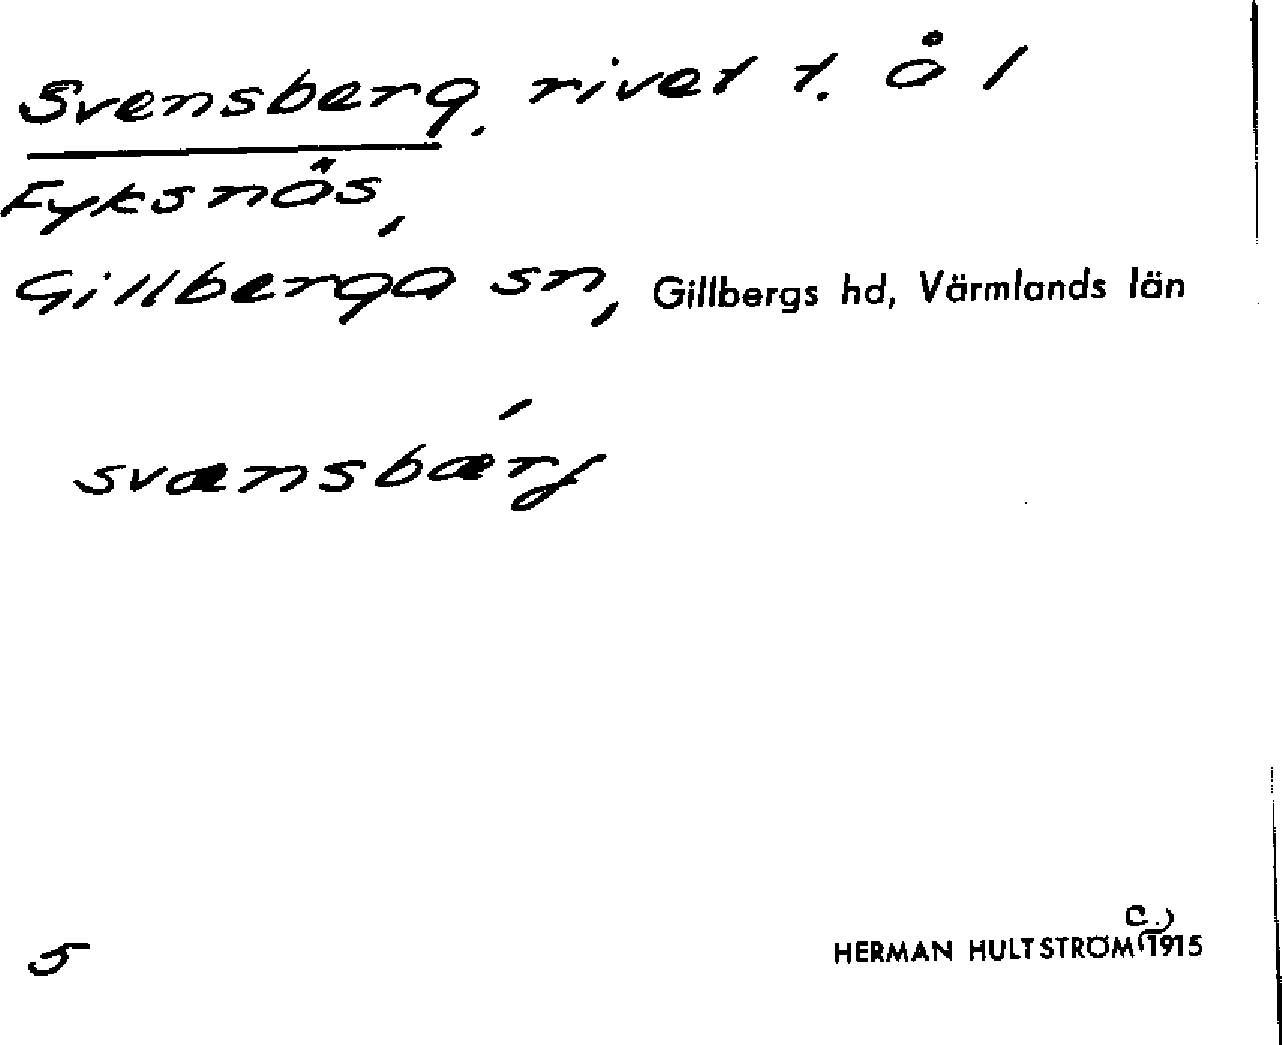 Svensberg, rivet t. å /
Fyksnäs,
Gillberga sn, Gillbergs hd, Värmlands län
svænsbærj
5
HERMAN HULTSTRÖM (C.) 1915